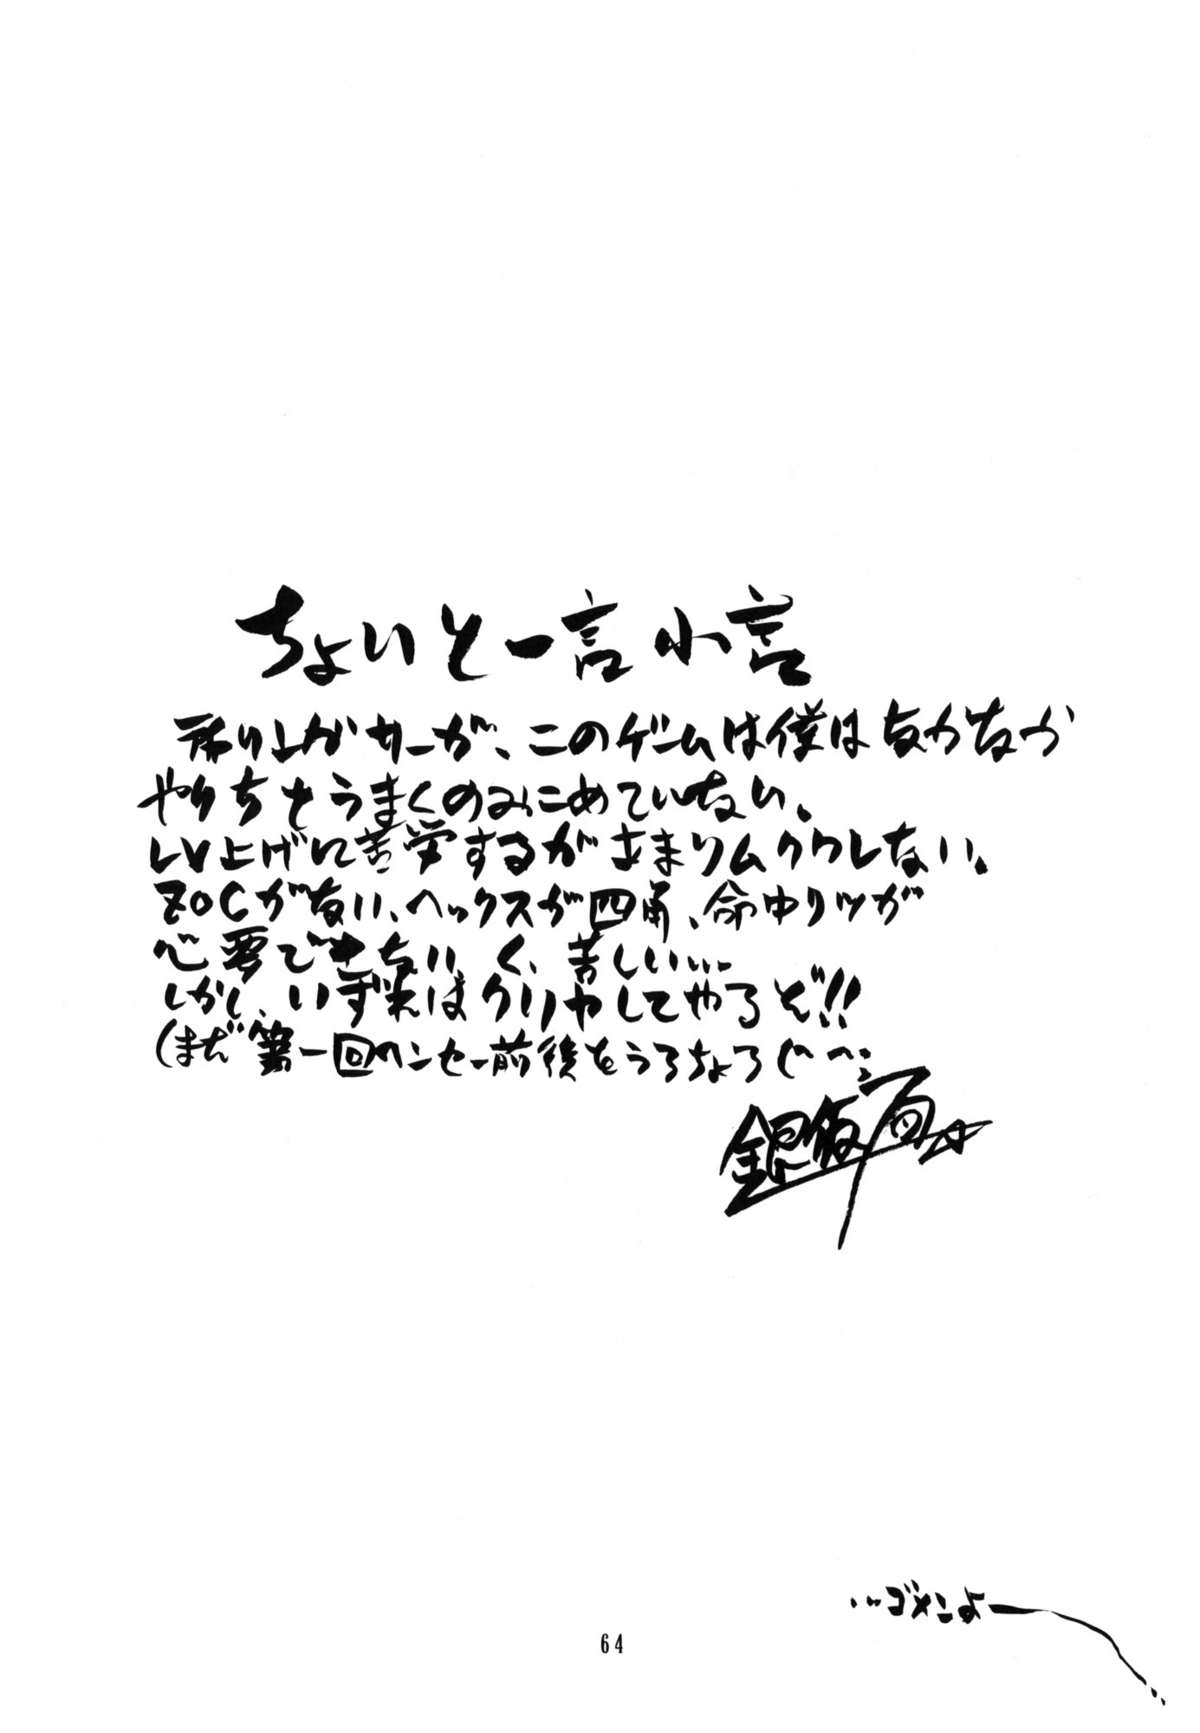 ちょいと一言小言
サーガ、このゲームは僕はなかなか
やりちとうまくのみこめていない。
LV上げに苦労するがあまりムクワレない。
ZOCがない、ヘックスが四角、命中リツが
できない く、苦しい…
しかし、いずれはクリヤしてやるぞ!!
(まだ第一回のヘンセー前後をうろちょろじゃ～
銀仮面☆
…ゴメンよー
64